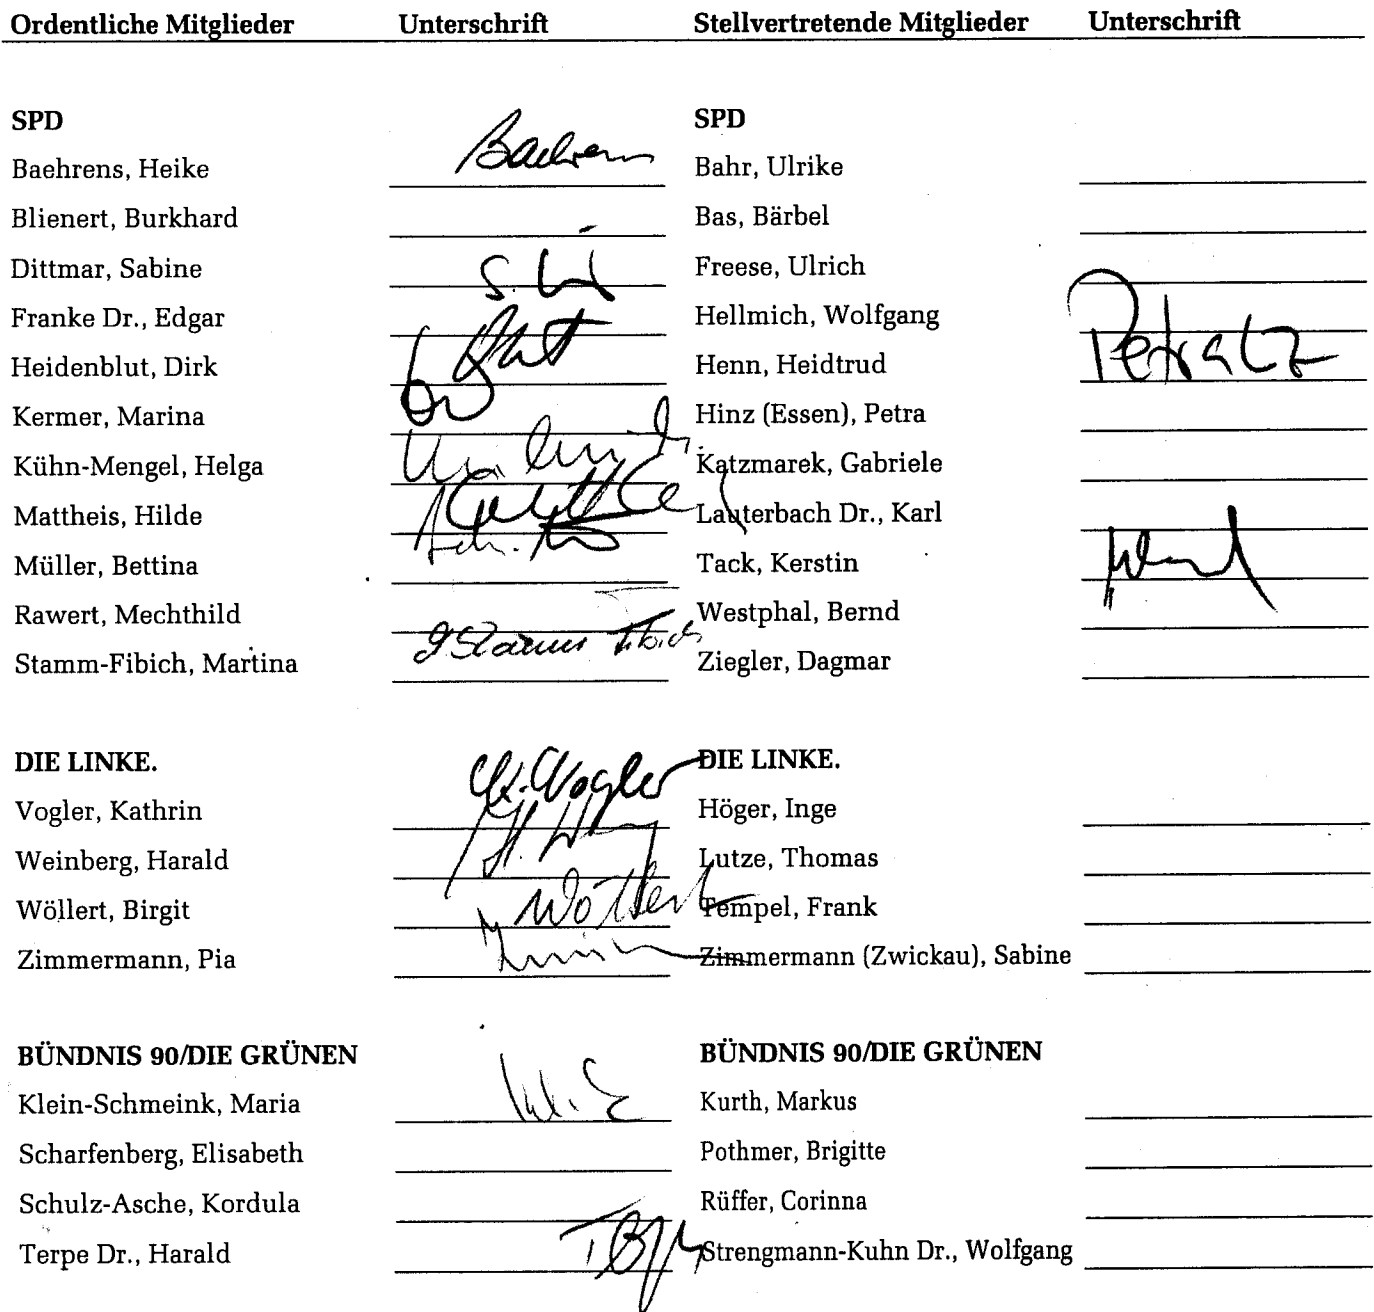 Ordentliche Mitglieder Unterschrift Stellvertretende Mitglieder Unterschrift
SPD SPD
Baehrens, Heike Baehrens Bahr, Ulrike
Blienert, Burkhard Bas, Bärbel
Dittmar, Sabine Freese, Ulrich
Franke Dr., Edgar Hellmich, Wolfgang
Heidenblut, Dirk Henn, Heidtrud
Kermer, Marina Hinz (Essen), Petra
Kühn-Mengel, Helga Katzmarek, Gabriele
Mattheis, Hilde Lauterbach Dr., Karl
Müller, Bettina Tack, Kerstin
Rawert, Mechthild Westphal, Bernd
Stamm-Fibich, Martina Stamm-Fibich Ziegler, Dagmar
DIE LINKE. DIE LINKE.
Vogler, Kathrin K. Vogler Höger, Inge
Weinberg, Harald Lutze, Thomas
Wöllert, Birgit Wöllert Tempel, Frank
Zimmermann, Pia Zimmermann (Zwickau), Sabine
BÜNDNIS 90/DIE GRÜNEN BÜNDNIS 90/DIE GRÜNEN
Klein-Schmeink, Maria Kurth, Markus
Scharfenberg, Elisabeth Pothmer, Brigitte
Schulz-Asche, Kordula Rüffer, Corinna
Terpe Dr., Harald Strengmann-Kuhn Dr., Wolfgang